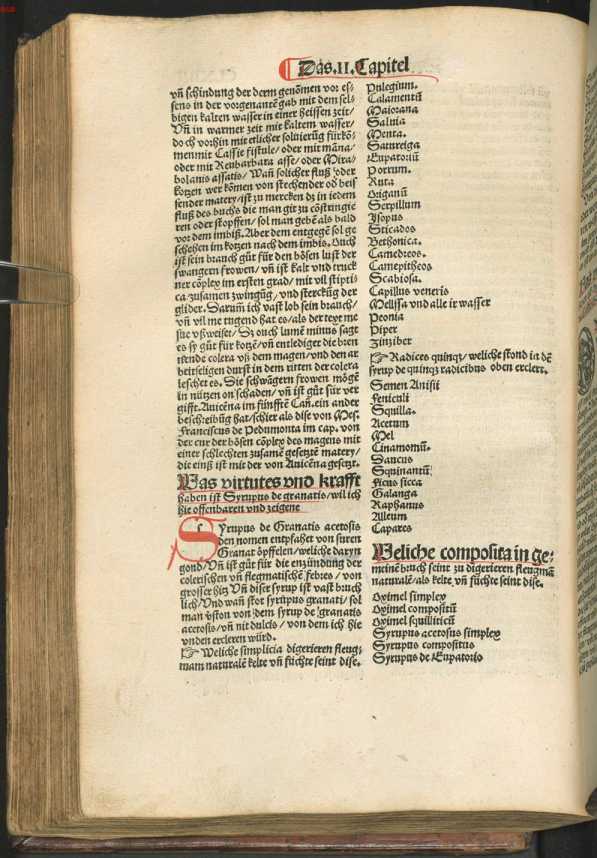 Das .II. Capitel
vñ schindung der derm genõmen vor es-
sens in der vorgenantẽ gab mit dem sel-
bigen kalten wasser in einer heissen zeit/
Vñ in warmer zeit mit kaltem wasser/
doch vorhin mit etlicher soluierũg fürkõ-
men mit Cassie fistule/ oder mit mãna/
oder mit Reubarbara asse/ oder Mira/
bolanis assatis/ Wañ solicher fluß oder
kotzen wer kõmen von stechender od heis
sender matery/ist zu mercken dz in iedem
fluß des buchs die man git zu cõstringie
ren oder stopffen/ sol man gebẽ als bald
vor dem imbiß. Aber dem entgegẽ sol ge
schehen im kotzen nach dem imbis. Auch
ist sein brauch gůt für den bösen lust der
swangern frowen/ vñ ist kalt vnd truck
ner cõplex im ersten grad/ mit vil stipti-
ca/zusamen zwingũg/ vnd sterckũg der
glider. Darum ich vast lob sein brauch/
vñ vil me tugend hat es/als der text me
sue vßweiset/ Dz ouch lumẽ minus sagt
es sy gůt für kotzẽ/vñ entlediget die bren
nende colera vß dem magen/vnd den ar
beitseligen durst in dem ritten der colera
leschet es. Die schwãgern frowen mögẽ
in nützen on schaden/ vñ ist gůt für ver
gifft. Auicẽna im fünfftẽ Cañ. ein ander
beschreibũg hat/schier als dise von Mes.
Franciscus de Pedumonta im cap. von
der cur der bösen cõplex des magens mit
einer schlechten zusamẽ gesetztẽ matery/
die einß ist mit der von Auicẽna gesetzt.
Was virtutes vnd krafft
haben ist Syrupus de granatis/wil ich
hie offenbaren vnd zeigene
Syrupus de Granatis acetosis
den nomen entpfahet von suren
Granat öpffelen/weliche daryn
gond/Vñ ist gůt für die enzündung der
colerischen vñ flegmatischẽ febres/ von
grosser hitz Vñ diser syrup ist vast bruch
lich/Vnd wañ stot syrupus granati/ sol
man v̈ston von dem syrup de granatis
acetosis/vñ nit dulcis/ von dem ich hie
vnden ercleren würd.
☞ Weliche simplicia digerieren fleug-
mam naturalẽ kelte vñ füchte seint dise.
Pulegium.
Calamentũ
Maiorana
Saluia
Menta.
Satureiga
Eupatoriũ
Porrum.
Ruta
Origanũ
Serpillum
Isopus
Sticados
Bethonica.
Camedreos.
Camepitheos
Scabiosa.
Capillus veneris
Melissa vnd alle ir wasser
Peonia
Piper
Zinziber
☞ Radices quinqz/ weliche stond in dẽ
syrup de quinqz radicibus oben erclert.
Semen Anisii
Feniculi
Squilla.
Acetum
Mel
Cinamomũ.
Daucus
Squinantũ
Ficus sicca
Galanga
Raphanus
Alleum
Capares
Weliche composita in ge-
meinẽ bruch seint zu digerieren fleugmã
naturalẽ/als kelte vñ füchte seint dise.
Oximel simplex
Oximel compositũ
Oximel squilliticũ
Syrupus acetosus simplex
Syrupus compositus
Syrupus de Eupatorio